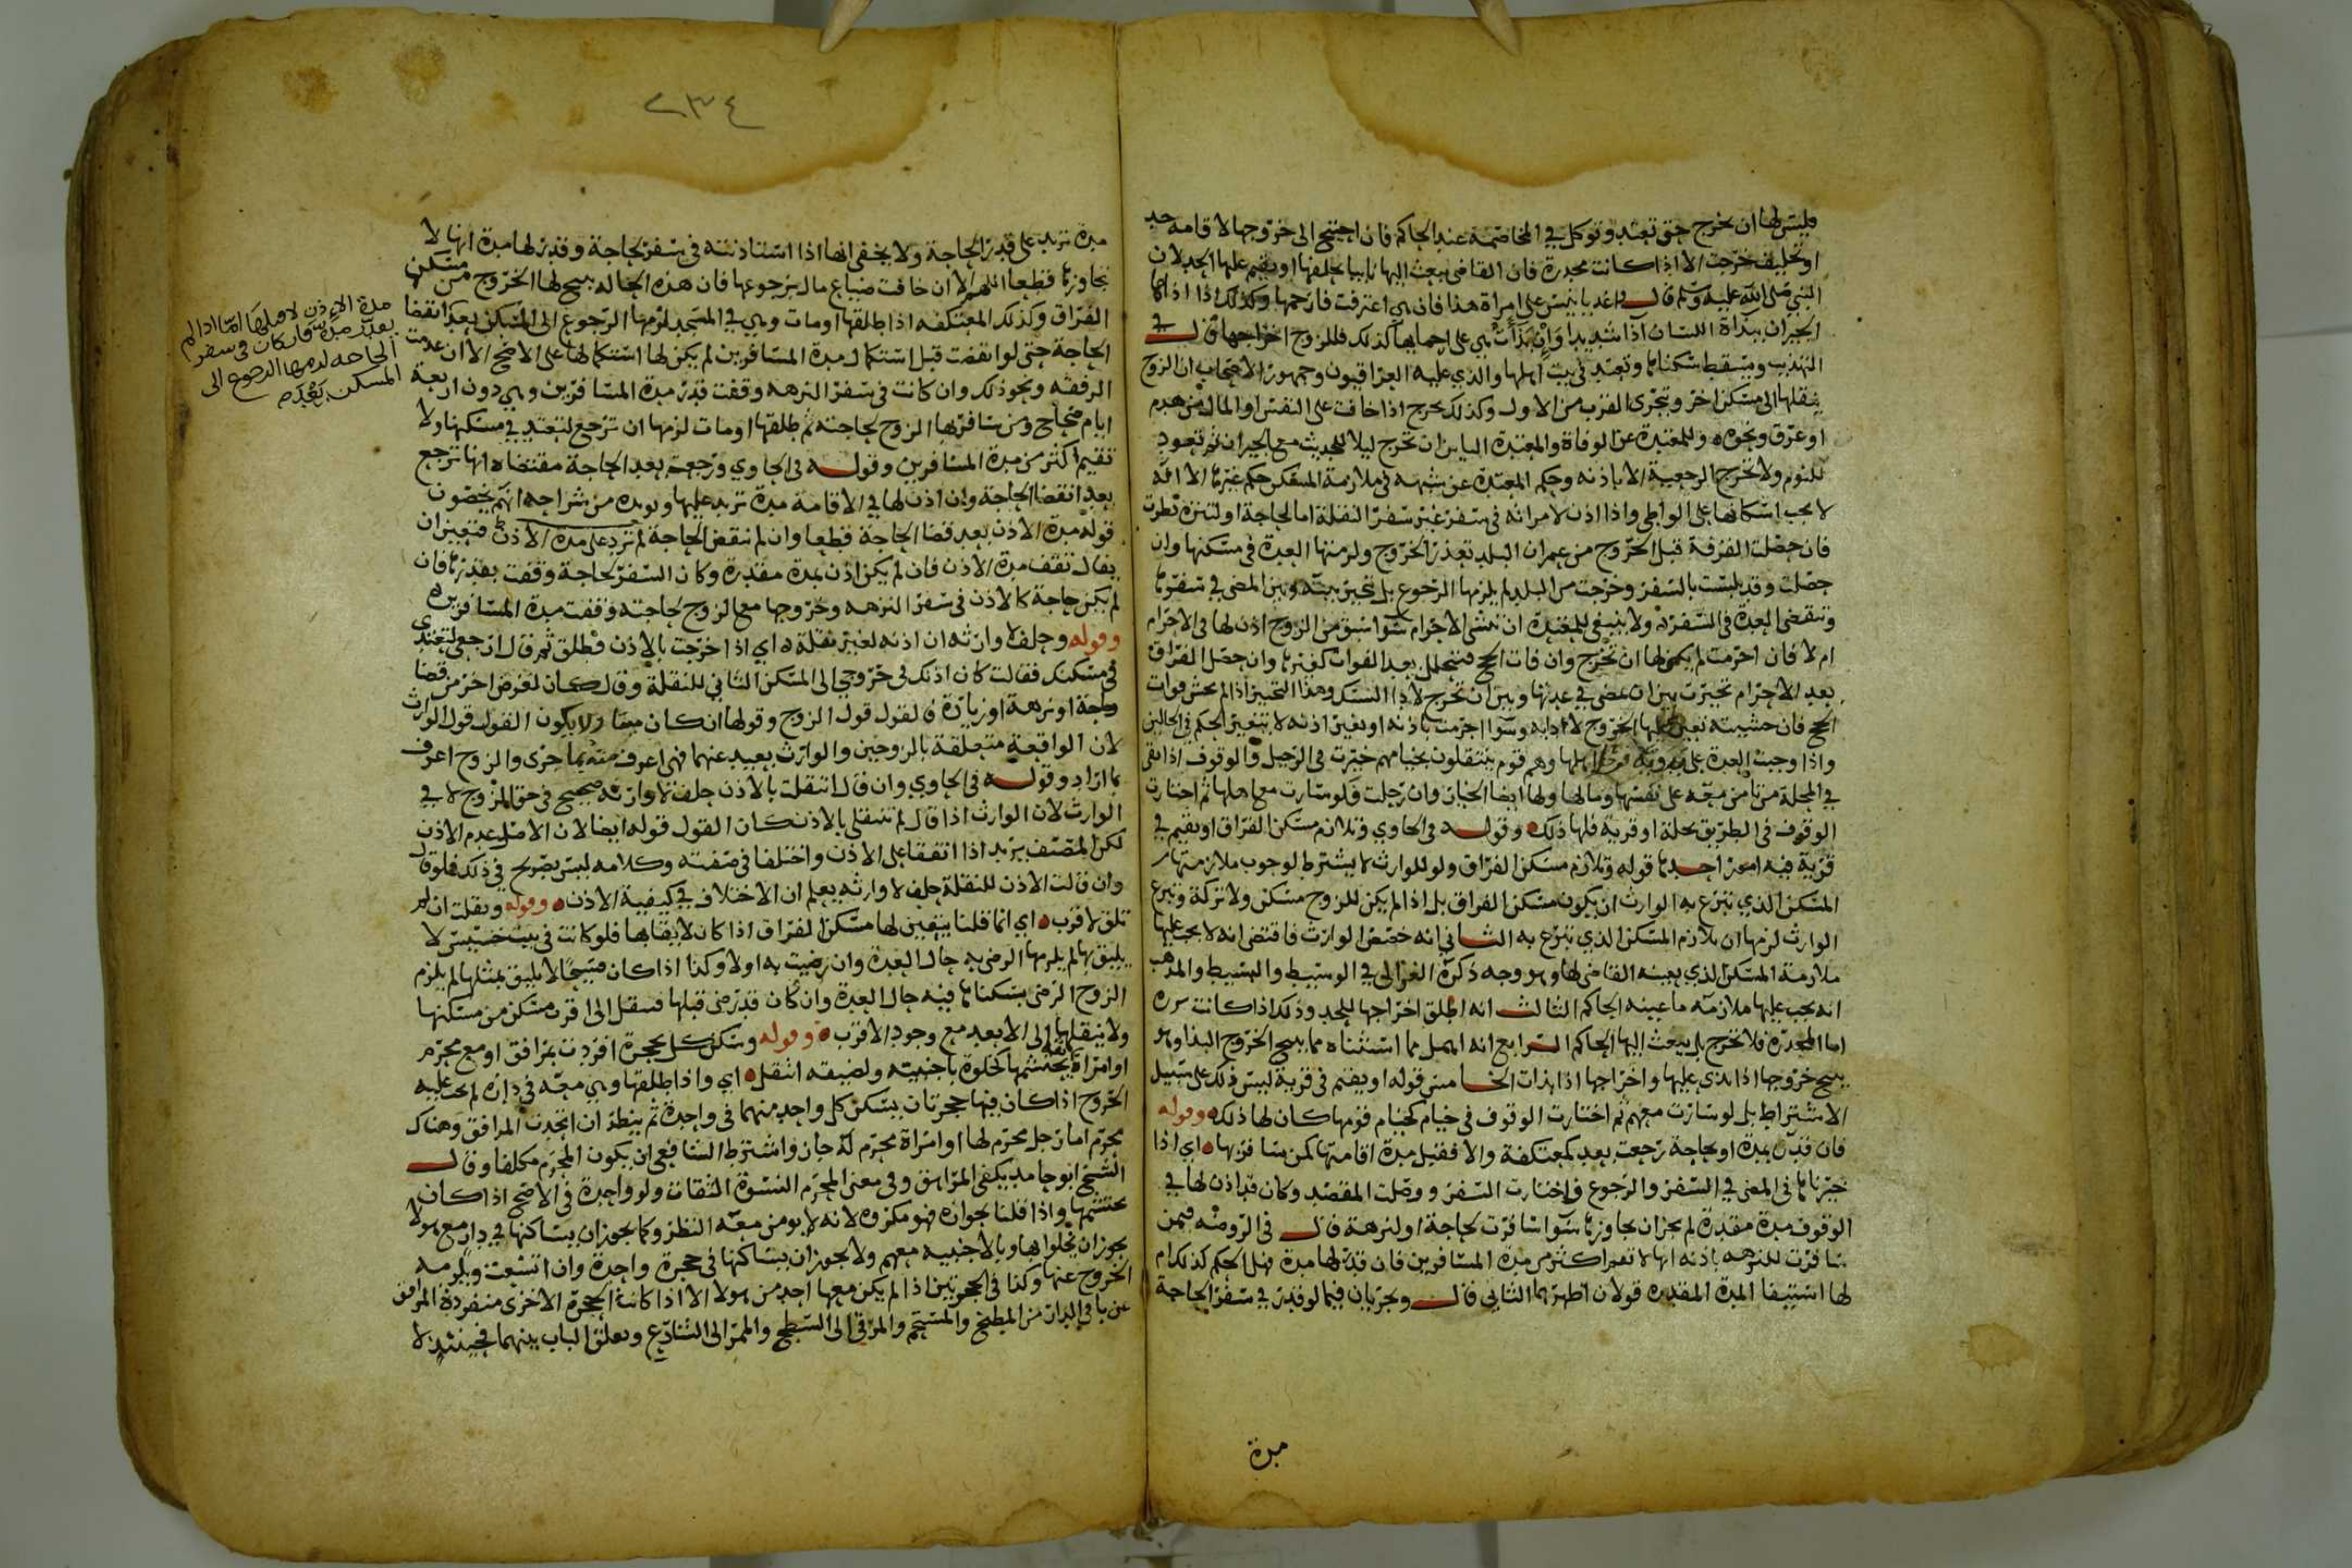 فليس لها ان تخرج حتى تعتد وتوكل في المخاصمة عند الحاكم فان احتيج الى خروجها لاقامة حد
او تحليف خرجت الا اذا كانت مخدرة فان القاضي يبعث اليها نايبا يحلفها او يقيم عليها الحد لان
النبي صلى الله عليه وسلم قال اغد يا انيس على امراة هذا فان هي اعترفت فارجمها وكذلك اذا اذاها
الجيران ببذاة اللسان اذا شديدا وان بذأت هي على احمايها كذلك فللزوج اخراجها قال في
التهذيب ويسقط سكناها وتعتد في بيت اهلها والذي عليه العراقيون وجمهور الاصحاب ان الزوج
ينقلها الى مسكن اخر ويتحرى القرب من الاول وكذلك تخرج اذا خافت على النفس او المال من هدم
او غرق ونحوه وللمعتدة عن الوفاة والمعتدة الباين ان تخرج ليلا للحديث مع الجيران ثم تعود
للنوم ولا تخرج الرجعية الا باذنه وحكم المعتدة عن شبهة في ملازمة المسكن حكم غيرها الا انه
لا يجب اسكانها على الواطي واذا اذن لامراته في سفر غير سفر النقلة اما لحاجة او لنزهة نظرت
فان حصلت الفرقة قبل الخروج من عمران البلد تعذر الخروج ولزمتها العدة في مسكنها وان
حصلت وقد تلبست بالسفر وخرجت من البلد لم يلزمها الرجوع بل تتخير بينه وبين المضي في سفرها
وتنقضي العدة في السفر ولا ينبغي للمعتدة ان تنشي الاحرام سوا سبق من الزوج اذن لها في الاحرام
ام لا فان احرمت لم يكن لها ان تخرج وان فات الحج فتتحلل بعد الفوات كغيرها وان حصل الفراق
بعد الاحرام تخيرت بين ان تمضي في عدتها وبين ان تخرج لادا النسك وهذا التخيير اذا لم تخش فوات
الحج فان خشيته تعين عليها الخروج لادايه وسوا احرمت باذنه او بغير اذنه لا يتغير الحكم في الحالين
واذا وجبت العدة على بدوية اهلها وهم قوم ينتقلون بخيامهم خيرت في الرحيل والوقوف اذا بقي
في المحلة من تامن معه على نفسها ومالها ولها ايضا الخيار وان رحلت فلو سارت مع اهلها ثم اختارت
الوقوف في الطريق بحلة او قرية فلها ذلك وقوله في الحاوي وتلازم مسكن الفراق او تقيم في
قرية فيه امور احدها قوله وتلازم مسكن الفراق ولو للوارث لا يشترط لوجوب ملازمتها
المسكن الذي تبرع به الوارث ان يكون مسكن الفراق بل اذا لم يكن للزوج مسكن ولا تركة وتبرع
الوارث لزمها ان تلازم المسكن الذي تبرع به الثاني انه خصص الوارث فاقتضى انه لا يجب عليها
ملازمة المسكن الذي يعينه القاضي لها وهو وجه ذكره الغزالي في الوسيط والبسيط والمذهب
انه يجب عليها ملازمة ما عينه الحاكم الثالث انه اطلق اخراجها للحد وذلك اذا كانت برزة
اما المخدرة فلا تخرج بل يبعث اليها الحاكم الرابع انه اهمل مما استثناه مما يبيح الخروج البذا وهو
يبيح خروجها اذا بذي عليها واخراجها اذا بذات الخامس قوله او يقيم في قرية ليس ذلك على سبيل
الاشتراط بل لو سارت معهم ثم اختارت الوقوف في خيام كخيام قومها كان لها ذلك وقوله
فان قدر مدة او لحاجة رجعت بعد كمعتكفة والا فقيل مدة اقامتها كمن سافر بها اي اذا
خيرناها في المضي في السفر والرجوع فاختارت السفر ووصلت المقصد وكان قد اذن لها في
الوقوف مدة مقدرة لم يجز ان تجاوزها سوا سافرت لحاجة او لنزهة قال في الروضة فيمن
سافرت للنزهة باذنه انها لا تقيم اكثر من مدة المسافرين فان قدر لها مدة فهل الحكم كذلك ام
لها استيفا المدة المقدرة قولان اظهرهما الثاني قال ويجريان فيما لو قدر في سفر الحاجة
مدة
٢٣٤
مدة تزيد على قدر الحاجة ولا يخفى انها اذا استاذنته في سفر لحاجة وقدر لها مدة انها لا
تجاوزها قطعا اللهم الا ان خافت ضياع مال برجوعها فان هذه الحالة يبيح لها الخروج من مسكن
الفراق وكذلك المعتكفة اذا طلقها او مات وهي في المسجد لزمها الرجوع الى المسكن بعد انقضا
الحاجة حتى لو انقضت قبل استكمال مدة المسافرين لم يكن لها استكمالها على الاصح الا ان عدمت
الرفقة ونحو ذلك وان كانت في سفر النزهة وقفت قدر مدة المسافرين وهي دون اربعة
ايام صحاح ومن سافر بها الزوج لحاجته ثم طلقها او مات لزمها ان ترجع لتعتد في مسكنها ولا
تقيم اكثر من مدة المسافرين وقوله في الحاوي ورجعت بعد الحاجة مقتضاه انها ترجع
بعد انقضا الحاجة وان اذن لها في الاقامة مدة تزيد عليها ويويده من شراحه انهم يخصون
قوله مدة الاذن بعد قضا الحاجة قطعا وان لم تنقض الحاجة لم تزد على مدة الاذن فتعين ان
يقال تقف مدة الاذن فان لم يكن اذن بمدة مقدرة وكان السفر لحاجة وقفت بقدرها فان
لم يكن حاجة كالاذن في سفر النزهة وخروجها مع الزوج لحاجته وقفت مدة المسافرين
وقوله وحلف لا وارثه ان اذنه لغير نقلة اي اذا خرجت بالاذن فطلق ثم قال ارجعي لتعتدي
في مسكنك فقالت كان اذنك لي في خروجي الى المسكن الثاني للنقلة وقال كان لغرض اخر من قضا
حاجة او نزهة او زيارة فالقول قول الزوج وقولها ان كان ميتا ولا يكون القول قول الوارث
لان الواقعة متعلقة بالزوجين والوارث بعيد عنهما فهي اعرف منه بما جرى والزوج اعرف
بما اراد وقوله في الحاوي وان قال انتقلت بالاذن حلف لا وارثه صحيح في حق الزوج لا في
الوارث لان الوارث اذا قال لم تنتقلي بالاذن كان القول قوله ايضا لان الاصل عدم الاذن
لكن المصنف يريد اذا اتفقا على الاذن واختلفا في صفته وكلامه ليس بصريح في ذلك فلو قال
وان قالت الاذن للنقلة حلف لا وارثه يعلم ان الاختلاف في كيفية الاذن وقوله ونقلت ان لم
تلق لاقرب اي انما قلنا يتعين لها مسكن الفراق اذا كان لايقا بها فلو كانت في بيت خسيس لا
يليق بها لم يلزمها الرضى به حال العدة وان رضيت به اولا وكذا اذا كان فسيحا لا يليق بمثلها لم يلزم
الزوج الرضى بسكناها فيه حال العدة وان كان قد رضي قبلها فتنقل الى اقرب مسكن من مسكنها
ولا ينقلها الى الابعد مع وجود الاقرب وقوله وسكن كل بحجرة افردت بمرافق او مع محرم
او امراة يحتشمها كخلوة باجنبيته ولضيقه انتقل اي واذا طلقها وهي معه في دار لم يجب عليه
الخروج اذا كان فيها حجرتان يسكن كل واحد منهما في واحدة ثم ينظر ان اتحدت المرافق وهناك
محرم اما رجل محرم لها او امراة محرم له جاز واشترط الشافعي ان يكون المحرم مكلفا وقال
الشيخ ابو حامد يكفي المراهق وفي معنى المحرم النسوة الثقات ولو واحدة في الاصح اذا كان
يحتشمها واذا قلنا بجوازه فهو مكروه لانه لا يومن معه النظر وكما يجوز ان يساكنها في دار مع هولا
يجوز ان يخلو بها وبالاجنبية معهم ولا يجوز ان يساكنها في حجرة واحدة وان اتسعت ويلزمه
الخروج عنها وكذا في الحجرتين اذا لم يكن معها احد من هولا الا اذا كانت الحجرة الاخرى منفردة المرافق
عن باقي الدار من المطبخ والمستحم والمرقى الى السطح والممر الى الشارع ويغلق الباب بينهما فحينئذ لا
مدة الاذن لاهلها اما اذا لم
يقدر مدة فان كان في سفر
الحاجة لزمها الرجوع الى
المسكن بعد